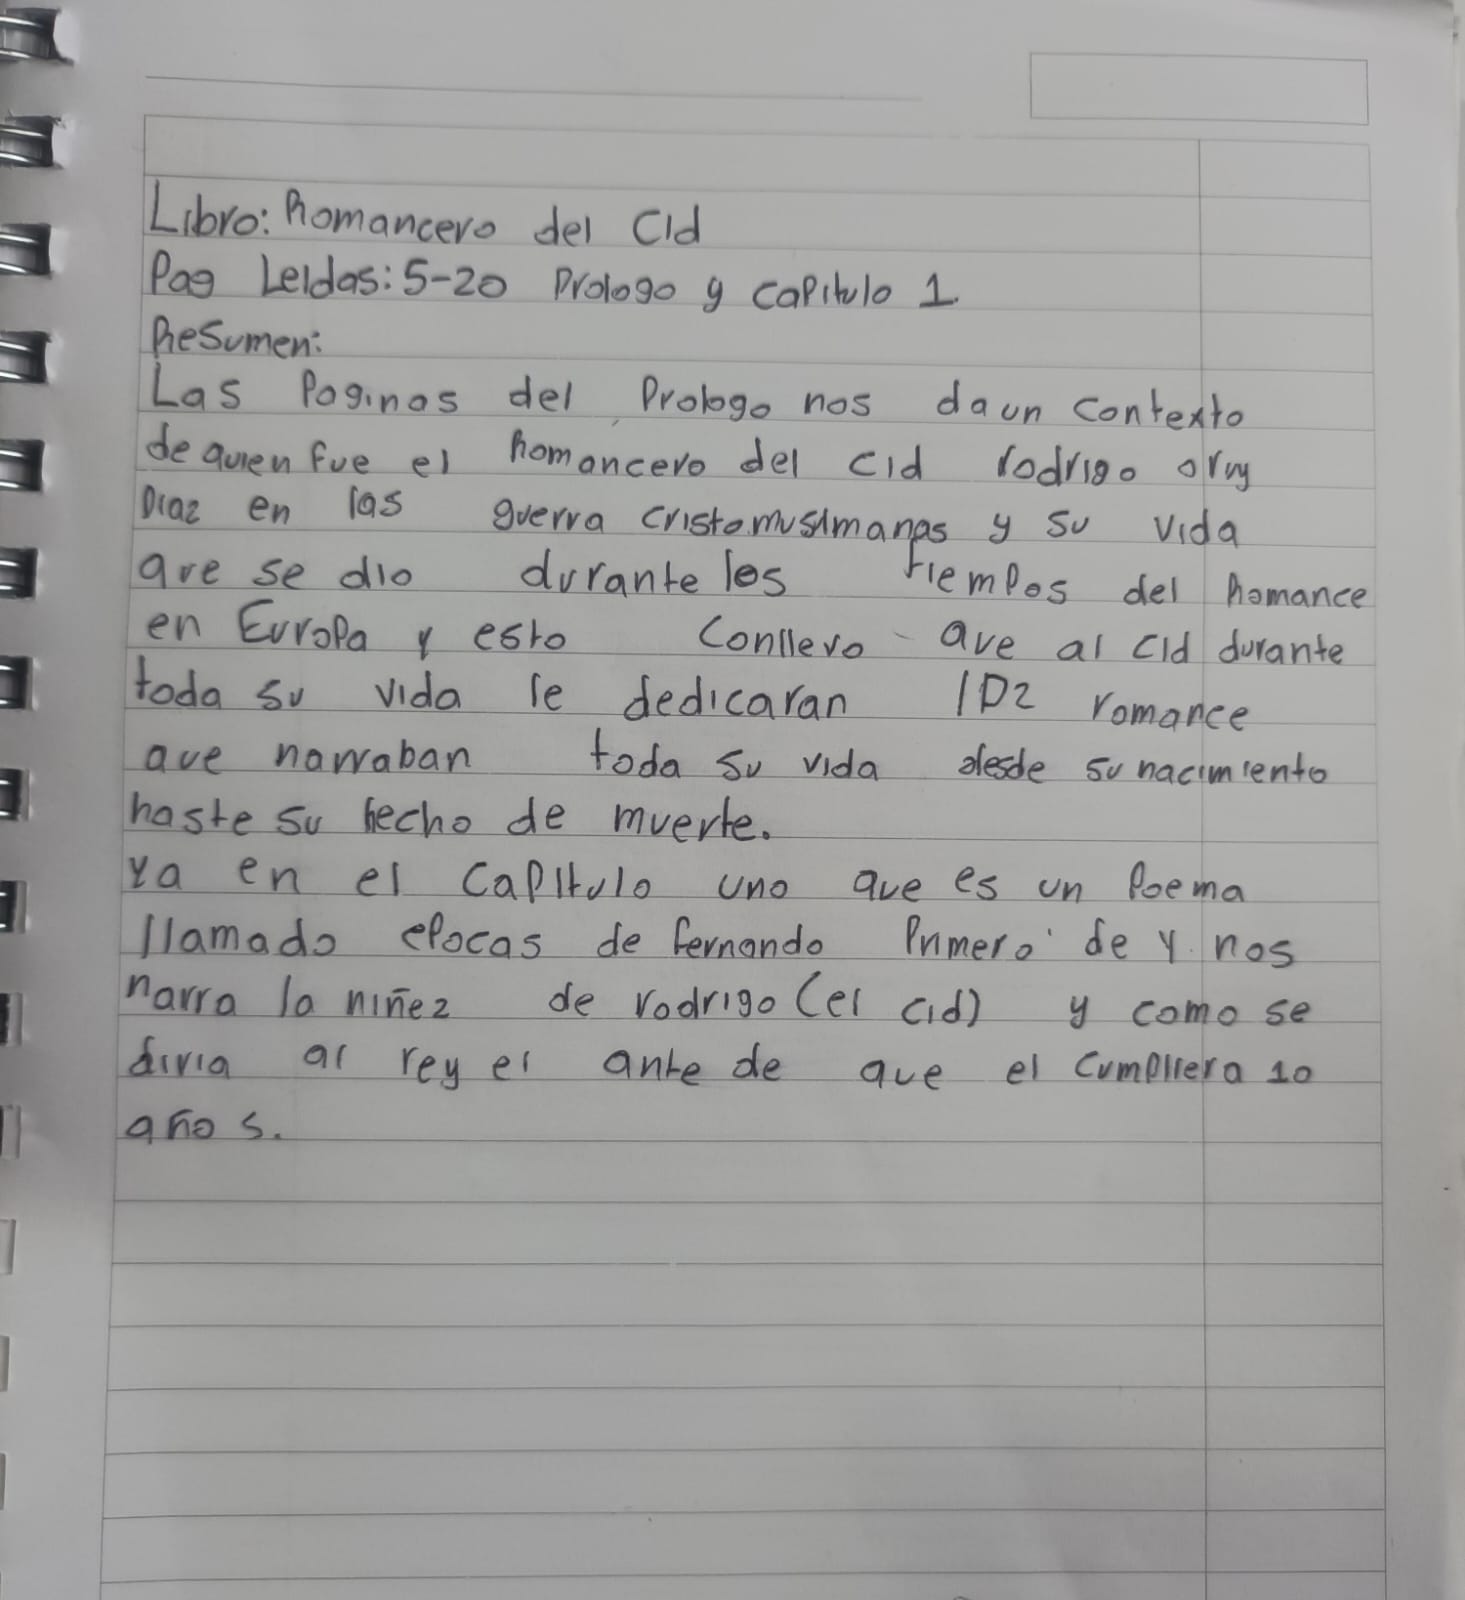 Libro: Romancero del Cid
Pag Leidas: 5-20 Prologo y capitulo 1.
Resumen:
Las Paginas del Prologo nos da un contexto
de quien fue el Romancero del cid rodrigo o ruy
Diaz en las guerra cristomusilmanas y su vida
que se dio durante los tiempos del Romance
en Europa y esto conllevo que al cid durante
toda su vida le dedicaran 102 romance
que narraban toda su vida desde su nacimiento
haste su hecho de muerte.
Ya en el capitulo uno que es un Poema
llamado epocas de fernando Primero de y nos
narra la niñez de rodrigo (el cid) y como se
al rey el ante de que el cumpliera 10
años.